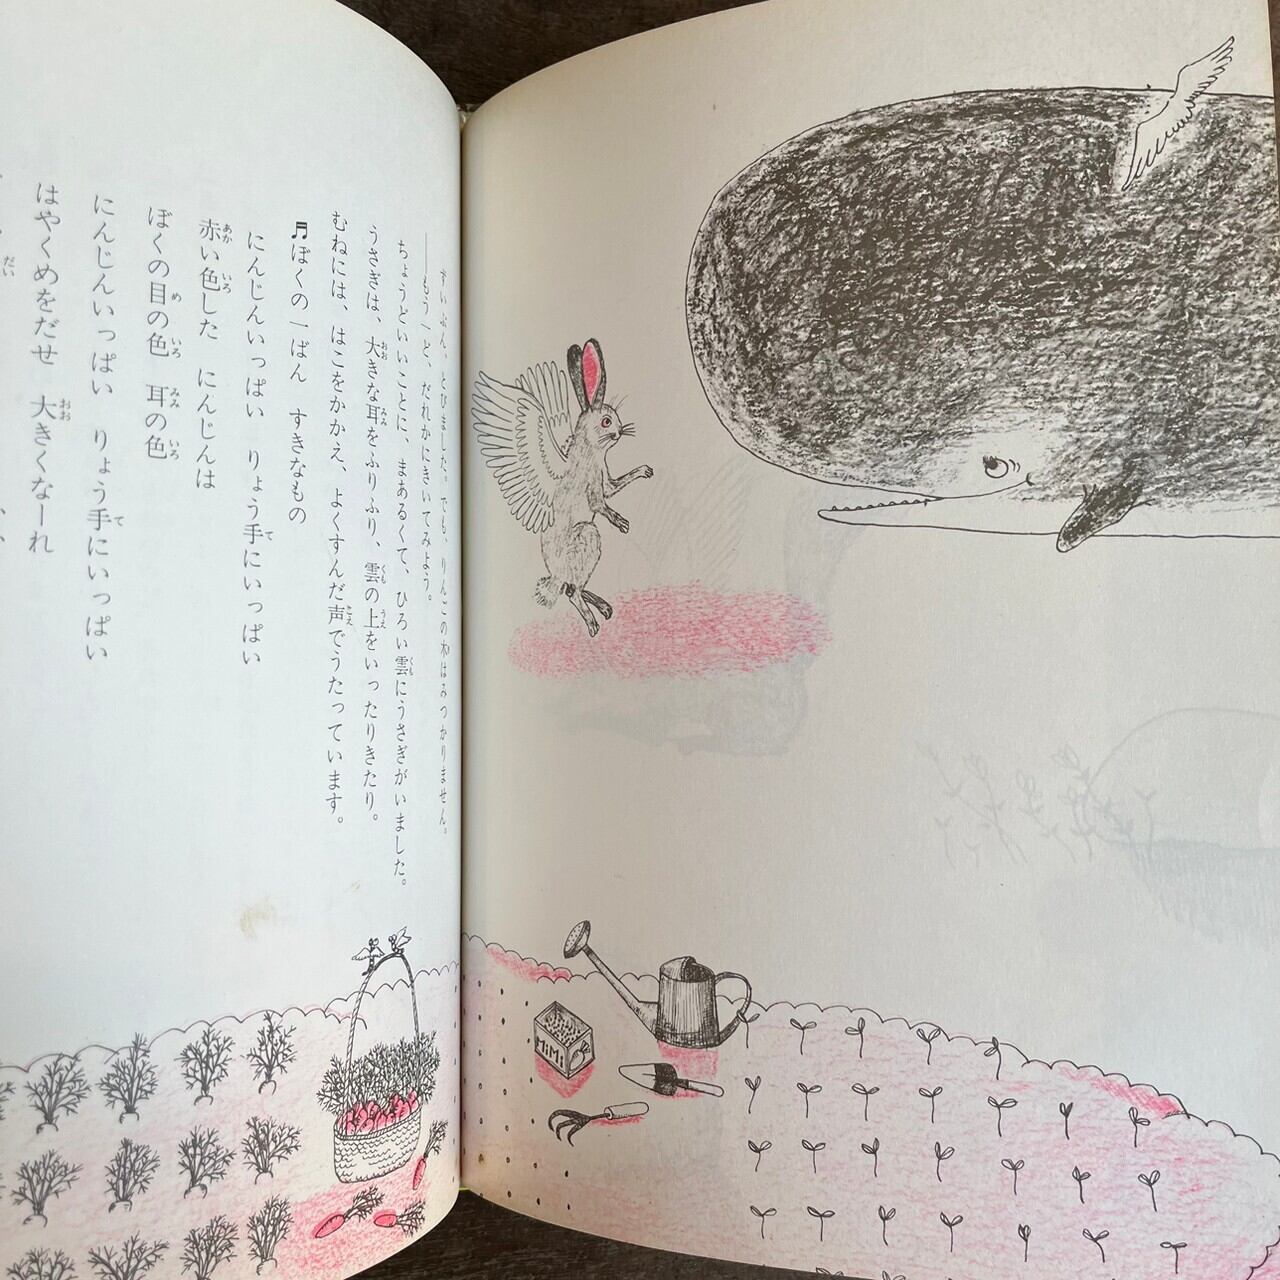 ずいぶん、とびました。でも、りんごの木はみつかりません。
――もう一ど、だれかにきいてみよう。
ちょうどいいことに、まあるくて、ひろい雲にうさぎがいました。
うさぎは、大きな耳をふりふり、雲の上をいったりきたり。
むねには、はこをかかえ、よくすんだ声でうたっています。
♬ぼくの一ばん すきなもの
にんじんいっぱい りょう手にいっぱい
赤い色した にんじんは
ぼくの目の色 耳の色
にんじんいっぱい りょう手にいっぱい
はやくめをだせ 大きくなーれ
MiMi